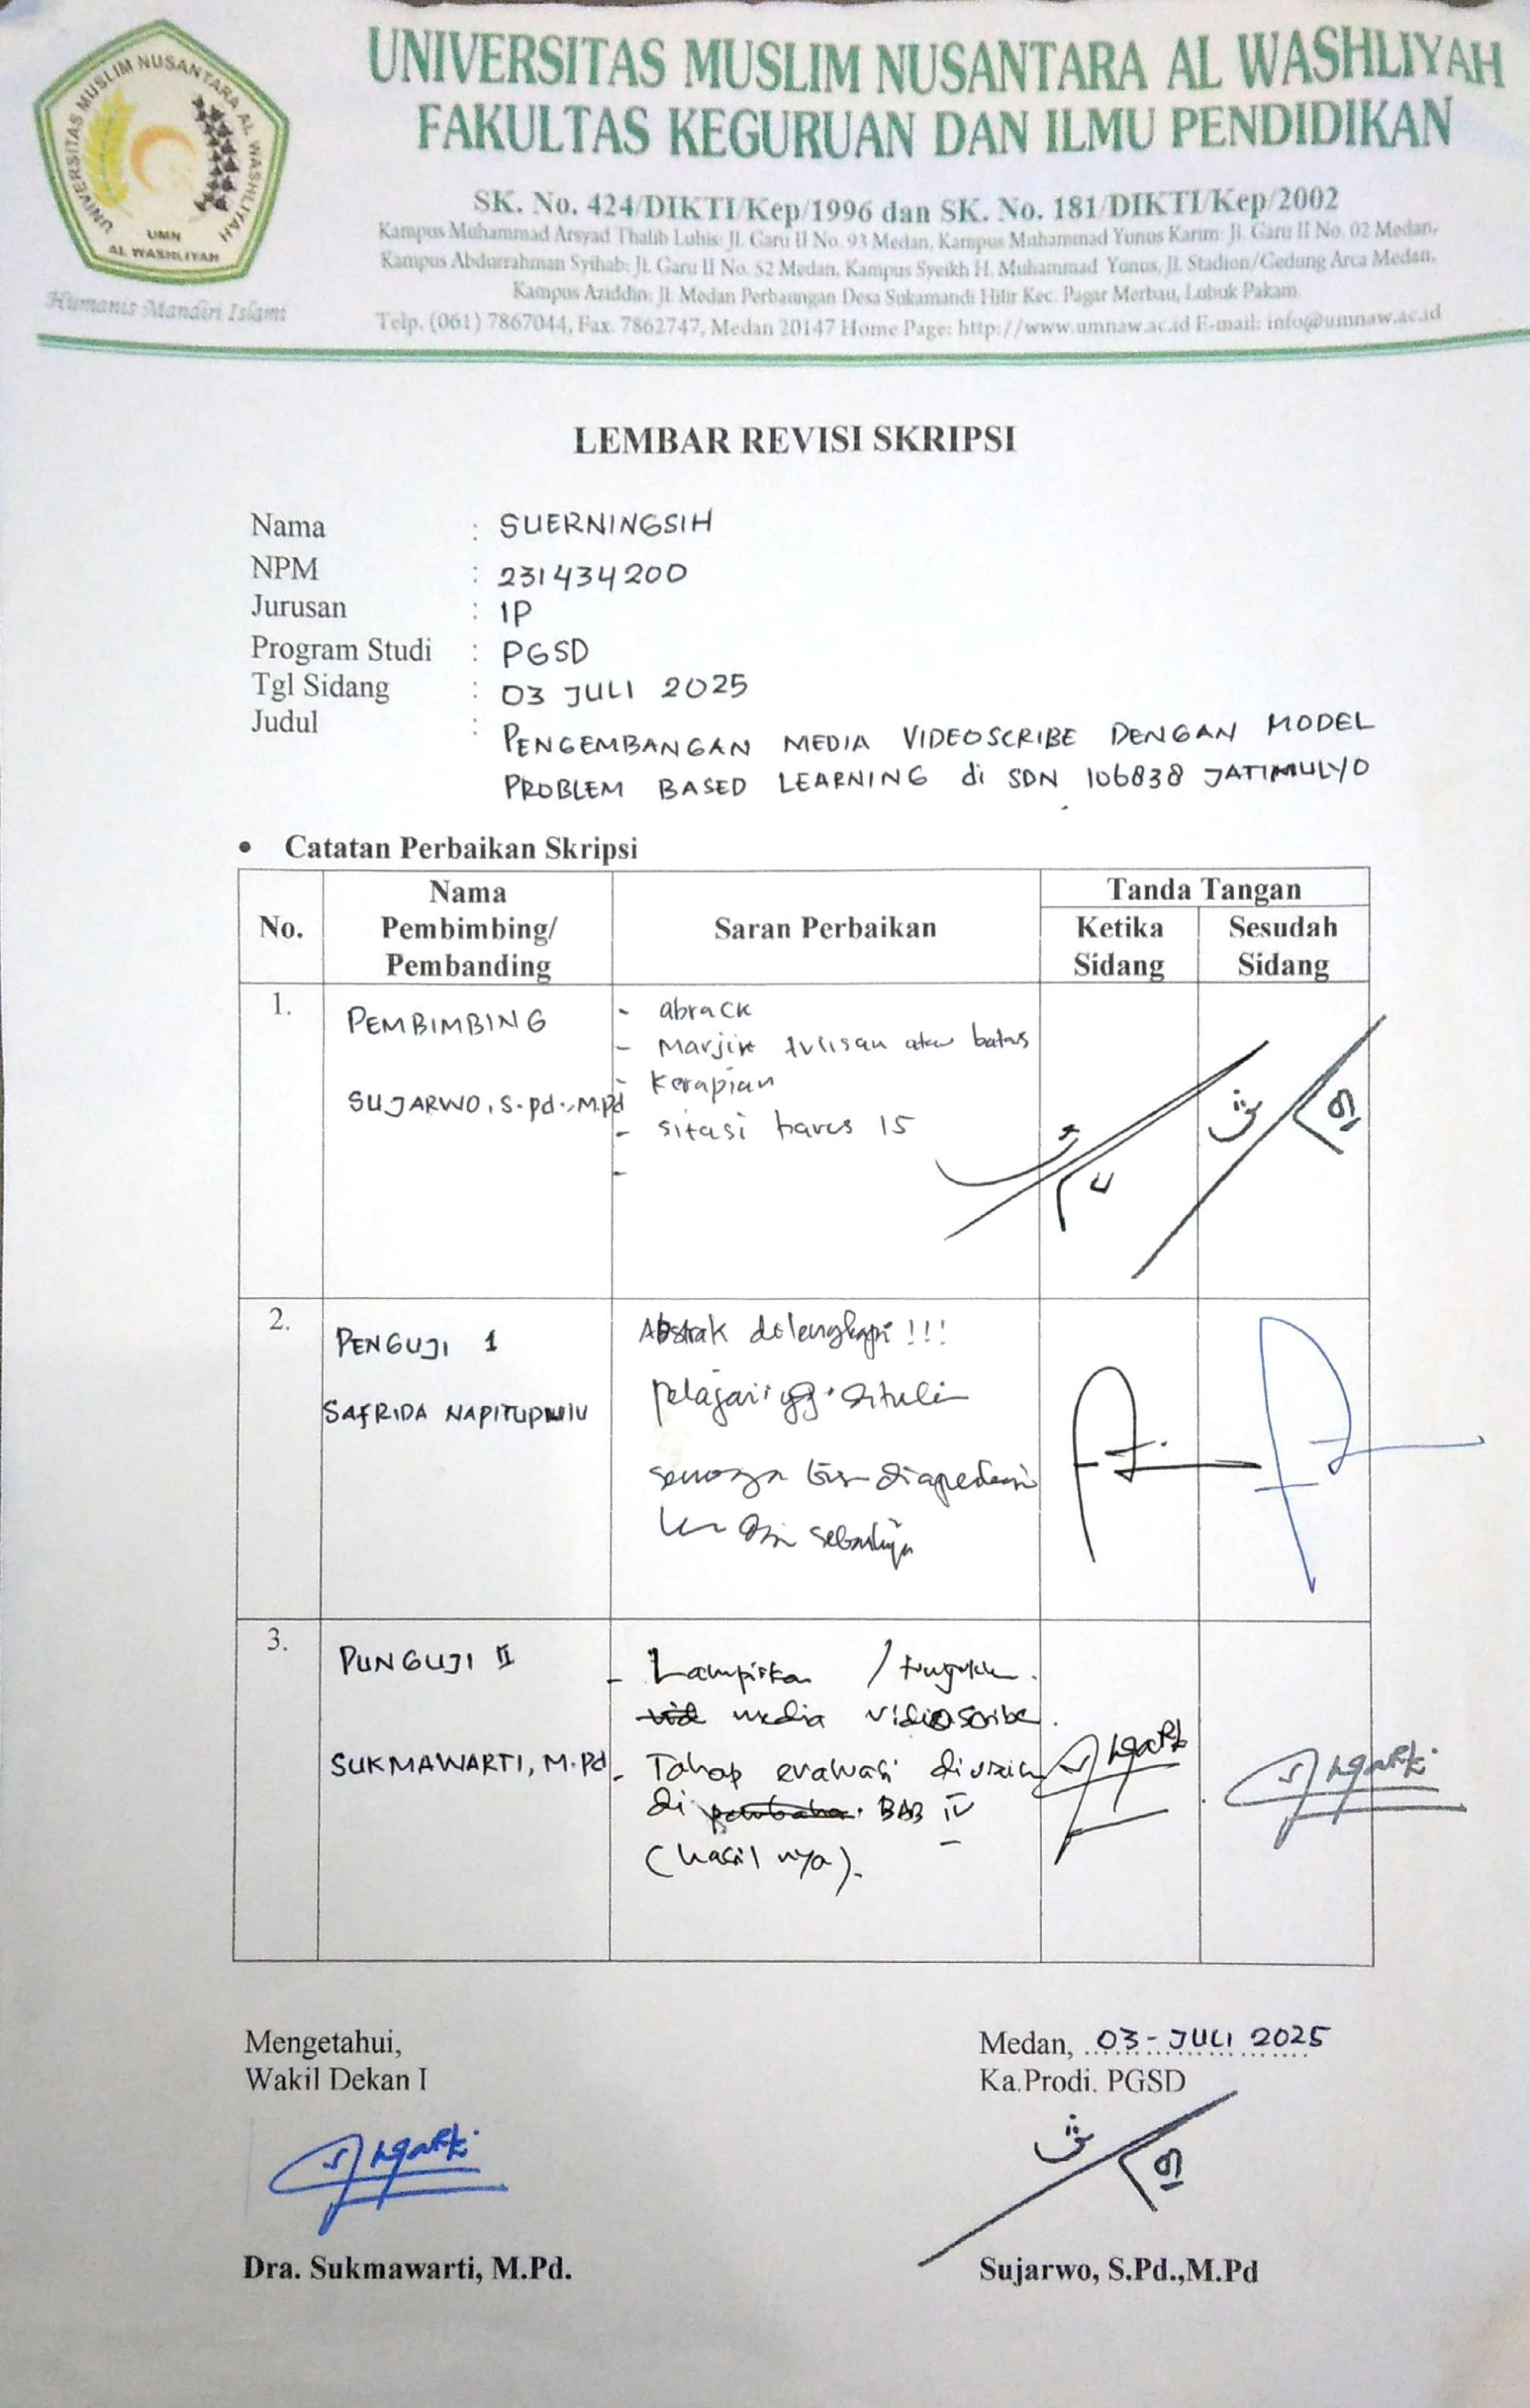 UNIVERSITAS MUSLIM NUSANTARA AL WASHLIYAH
UMN
AL WASHLIYAH
Humanis Mandiri Islami
UNIVERSITAS MUSLIM NUSANTARA AL WASHLIYAH
FAKULTAS KEGURUAN DAN ILMU PENDIDIKAN
SK. No. 424/DIKTI/Kep/1996 dan SK. No. 181/DIKTI/Kep/2002
Kampus Muhammad Arsyad Thalib Lubis: Jl. Garu II No. 93 Medan, Kampus Muhammad Yunus Karim: Jl. Garu II No. 02 Medan,
Kampus Abdurrahman Syihab: Jl. Garu II No. 52 Medan, Kampus Syeikh H. Muhammad Yunus, Jl. Stadion/Gedung Arca Medan,
Kampus Aziddin: Jl. Medan Perbaungan Desa Sukamandi Hilir Kec. Pagar Merbau, Lubuk Pakam.
Telp. (061) 7867044, Fax. 7862747, Medan 20147 Home Page: http://www.umnaw.ac.id E-mail: info@umnaw.ac.id
LEMBAR REVISI SKRIPSI
Nama : SUERNINGSIH
NPM : 231434200
Jurusan : IP
Program Studi : PGSD
Tgl Sidang : 03 JULI 2025
Judul : PENGEMBANGAN MEDIA VIDEOSCRIBE DENGAN MODEL
PROBLEM BASED LEARNING di SDN 106838 JATIMULYO
• Catatan Perbaikan Skripsi
No.
Nama
Pembimbing/
Pembanding
Saran Perbaikan
Tanda Tangan
Ketika
Sidang
Sesudah
Sidang
1.
PEMBIMBING
SUJARWO, S.pd., M.pd
- abrack
- Marjin tulisan atau batas
- Kerapian
- sitasi harus 15
-
2.
PENGUJI 1
SAFRIDA NAPITUPULU
Abstrak dilengkapi !!!
pelajari yg. ditulis
3.
PUNGUJI II
SUKMAWARTI, M.Pd
- Lampirkan /
vid media videoscribe.
- Tahap evaluasi
di BAB IV
(hasil nya).
Mengetahui,
Wakil Dekan I
Dra. Sukmawarti, M.Pd.
Medan, 03 - JULI 2025
Ka.Prodi. PGSD
Sujarwo, S.Pd.,M.Pd